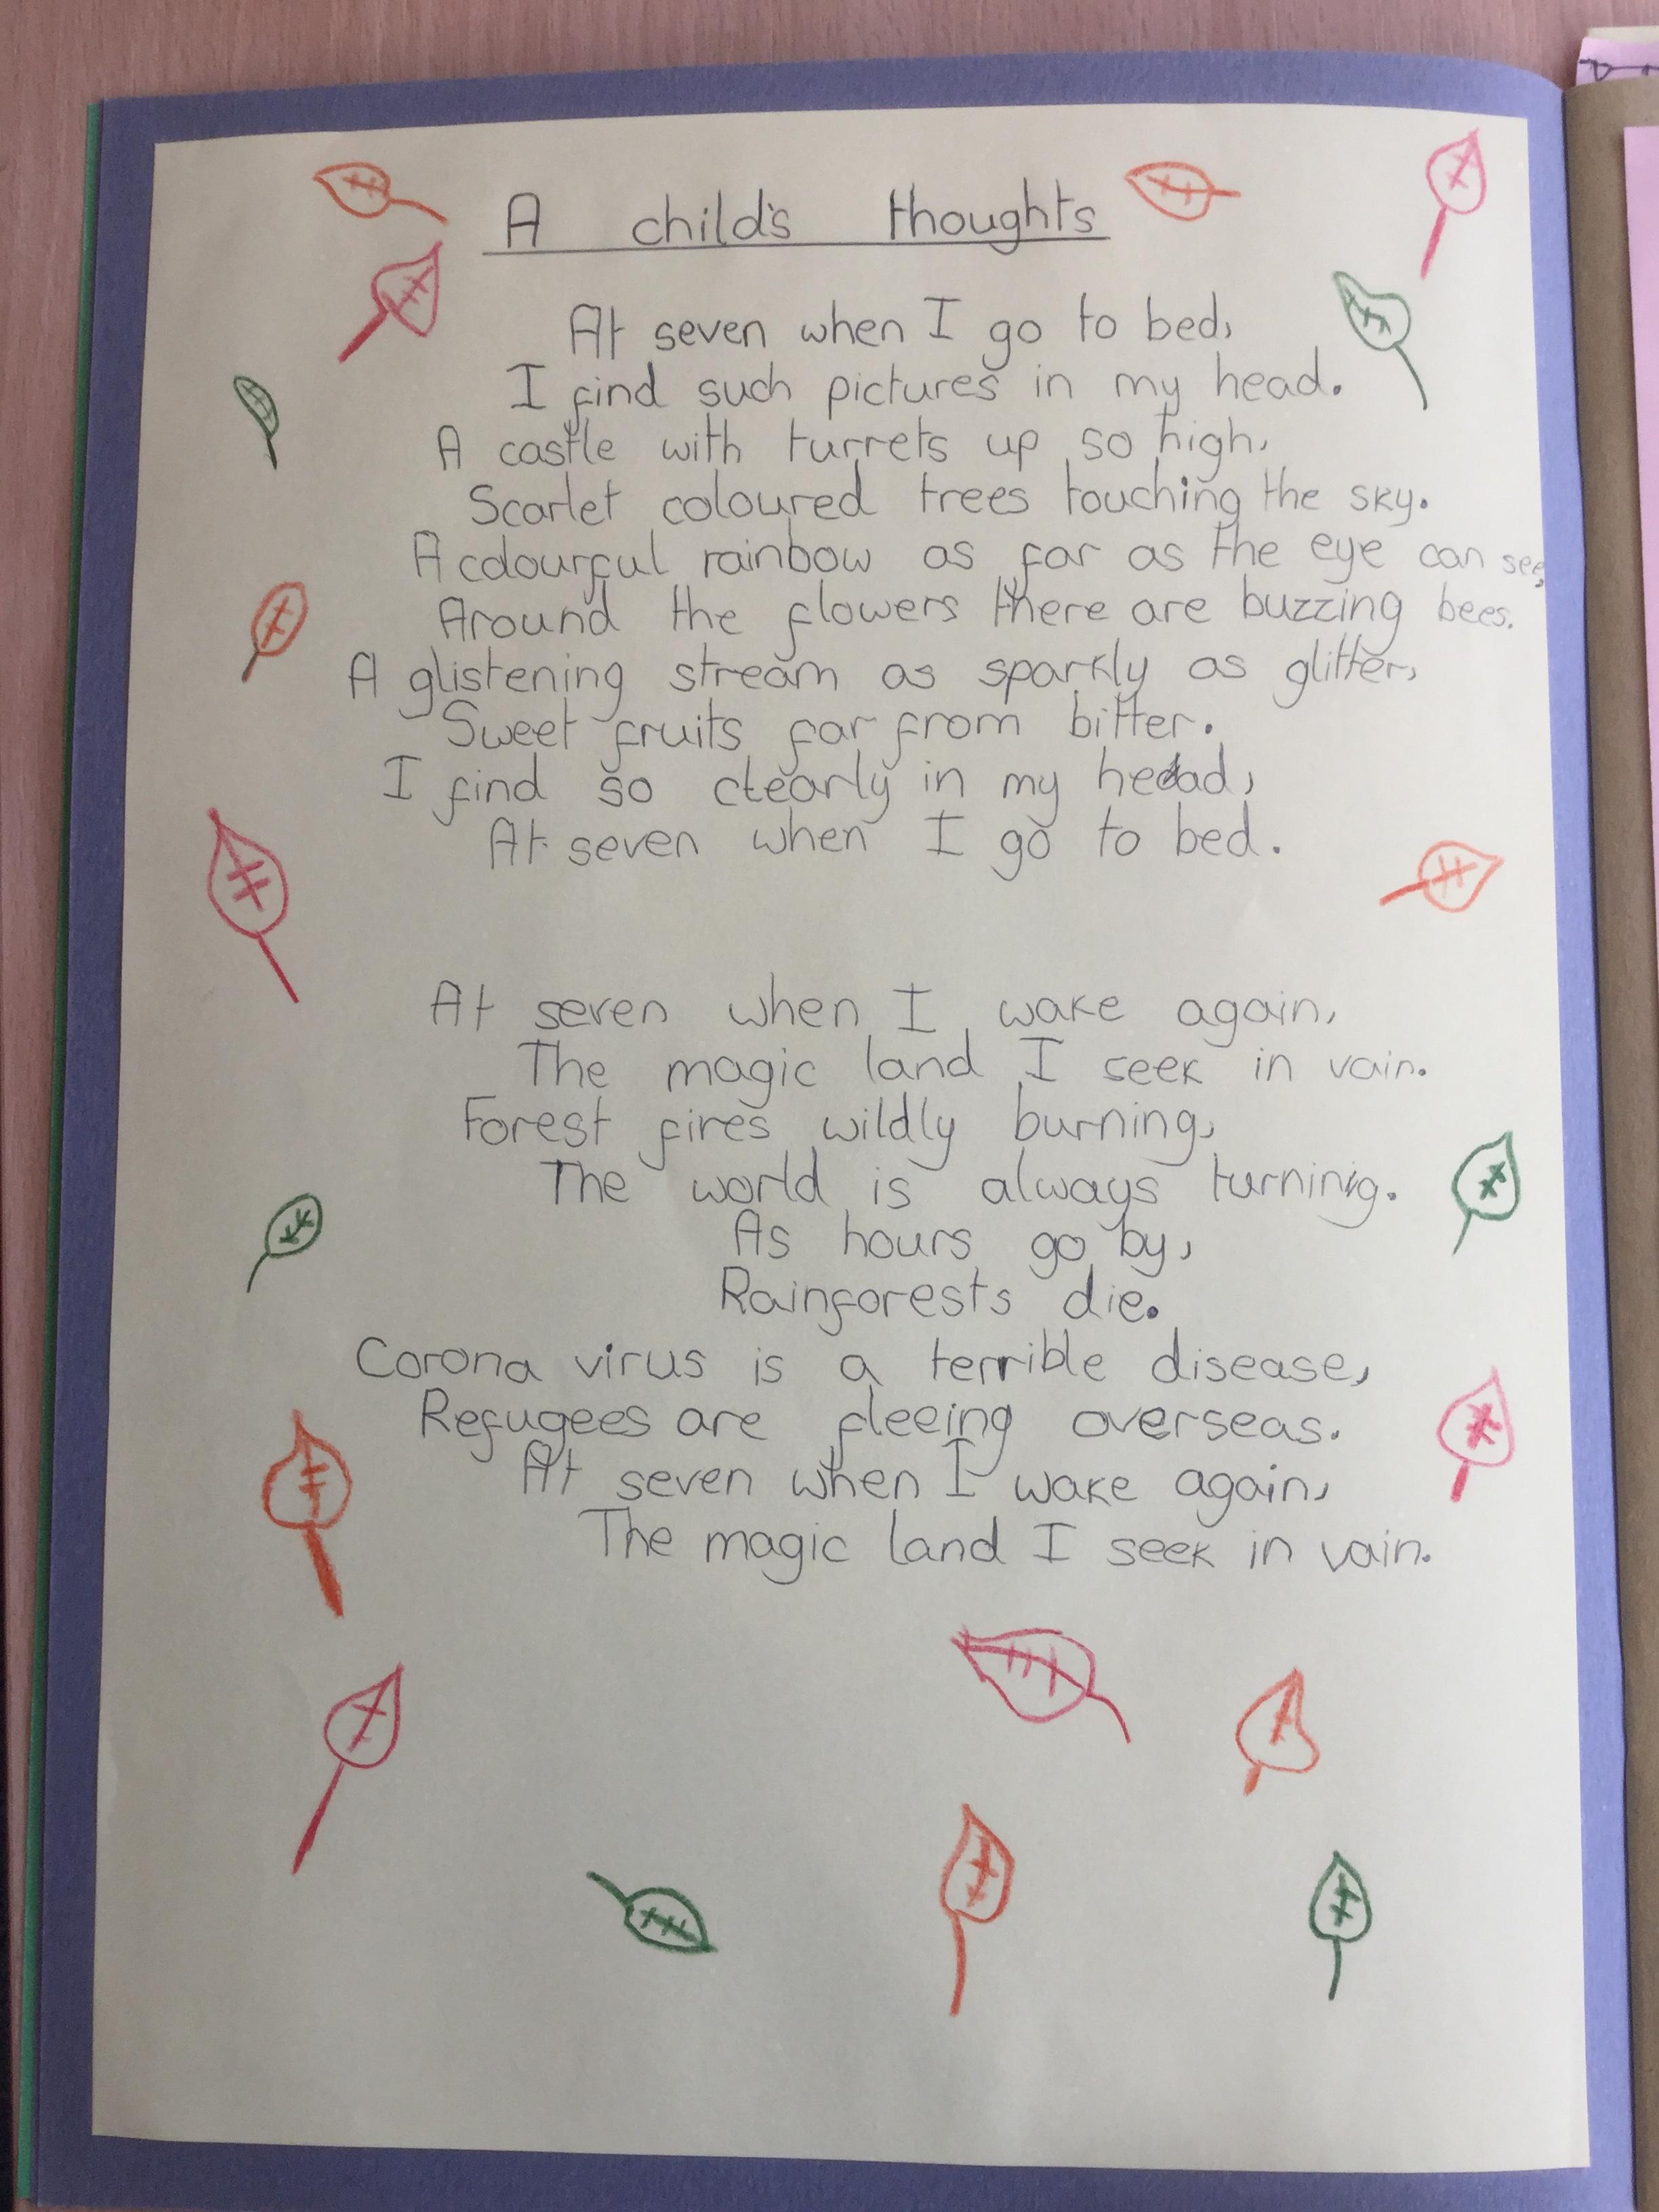 A child's thoughts
At seven when I go to bed,
I find such pictures in my head.
A castle with turrets up so high,
Scarlet coloured trees touching the sky.
A colourful rainbow as far as the eye can see,
Around the flowers there are buzzing bees.
A glistening stream as sparkly as glitter,
Sweet fruits far from bitter.
I find so clearly in my head,
At seven when I go to bed.
At seven when I wake again,
The magic land I seek in vain.
Forest fires wildly burning,
The world is always turning.
As hours go by,
Rainforests die.
Corona virus is a terrible disease,
Refugees are fleeing overseas.
At seven when I wake again,
The magic land I seek in vain.